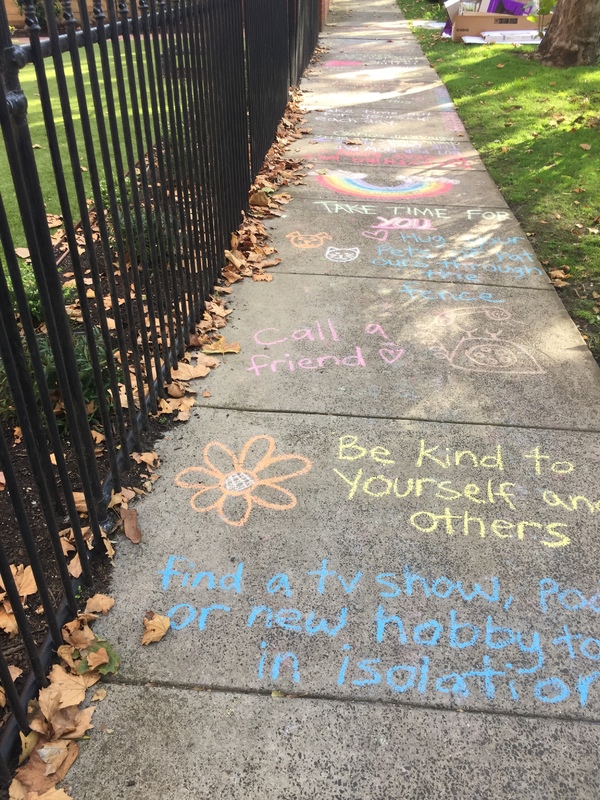 TAKE TIME FOR
YOU
Hug your
Pets or pat
ours through
the
fence
Call a
friend
Be kind to
Yourself an
others
find a tv show, Po
or new hobby to
in isolation